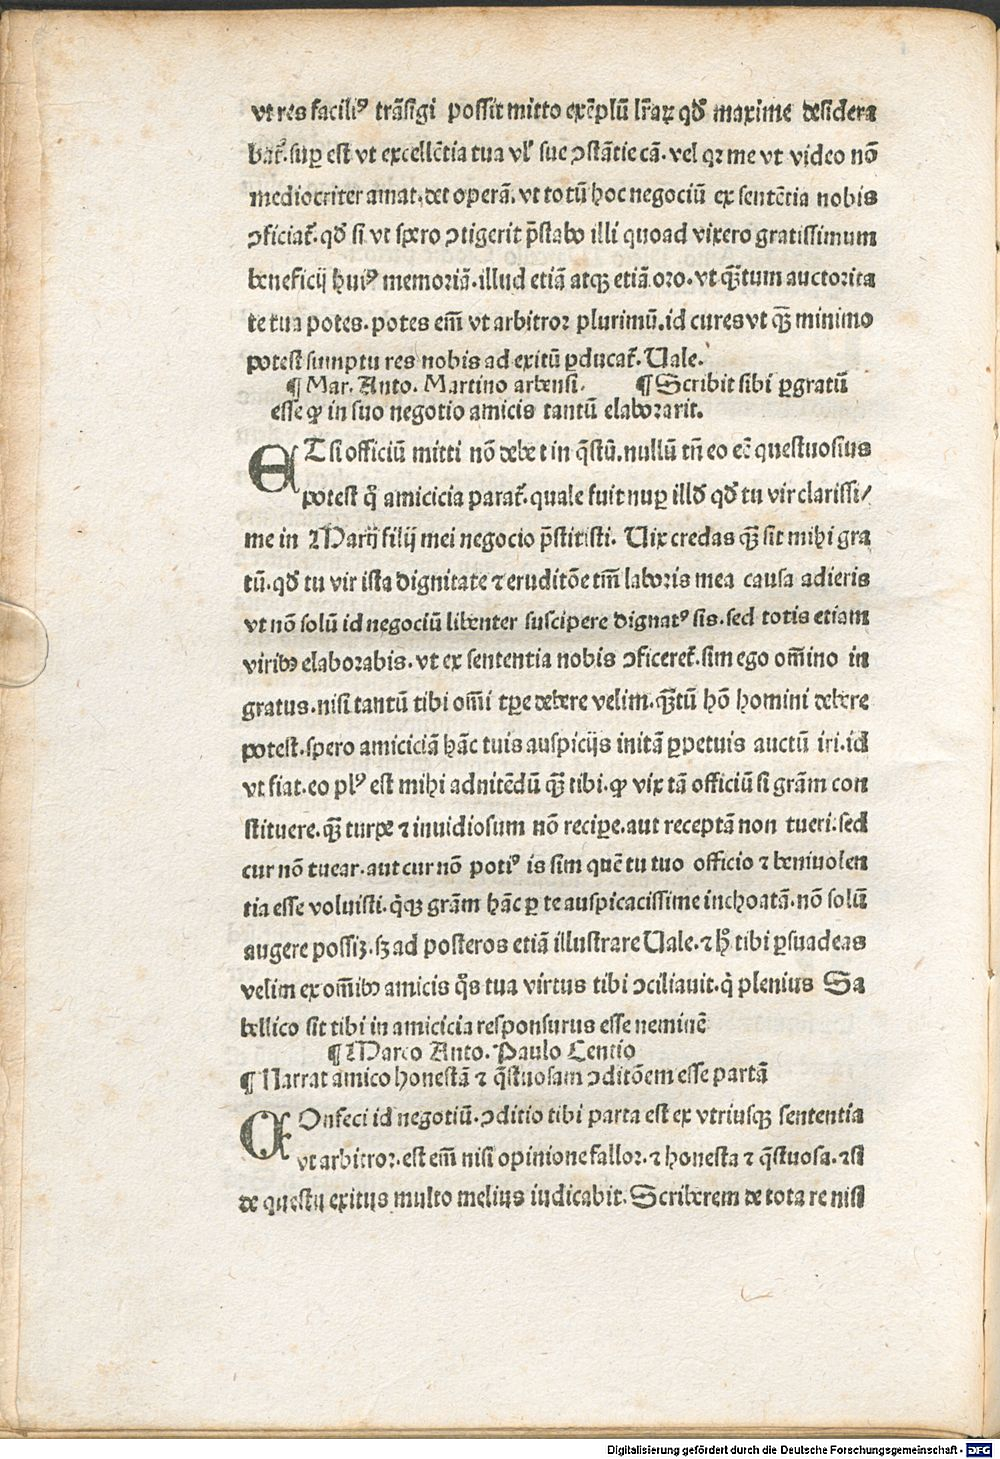 vt res faciliꝰ trãsigi possit mitto exẽplũ lr̃aꝝ qđ maxime desidera
bat̃.suꝑ est vt excellẽtia tua vl̓ sue ↄstãtie cã.vel qꝛ me vt video nõ
mediocriter amat.det operã.vt totũ hoc negociũ ex sentẽtia nobis
ↄficiat̃.qđ si vt spero ↄtigerit p̃stabo illi quoad vixero gratissimum
beneficij huiꝰ memoriã.illud etiã atqꝫ etiã oro.vt qᷓꝫtum auctorita
te tua potes.potes em̃ vt arbitror plurimũ.id cures vt qᷓꝫ minimo
potest sumptu res nobis ad exitũ ꝑducat̃.Uale.
¶ Mar. Anto. Martino arbensi. ¶ Scribit sibi ꝑgratũ
esse ꝙ in suo negotio amicis tantũ elaborarit.
ETsi officiũ mitti nõ debet in q̃stũ.nullũ tñ eo eẽ questuosius
potest q̃ amicicia parat̃.quale fuit nuꝑ illđ qđ tu vir clarissi/
me in Marij filij mei negocio p̃stitisti. Uix credas qᷓꝫ sit mihi gra
tũ.qđ tu vir ista dignitate ⁊ eruditõe tm̃ laboris mea causa adieris
vt nõ solũ id negociũ libenter suscipere dignatꝰ sis.sed totis etiam
viribꝰ elaborabis.vt ex sententia nobis ↄficeret̃.sim ego om̃ino in
gratus.nisi tantũ tibi om̃i tꝑe debere velim.qᷓꝫtũ hõ homini debere
potest.spero amiciciã hãc tuis auspicijs initã ꝑpetuis auctũ iri.id
vt fiat.eo plꝰ est mihi adnitẽdũ qᷓꝫ tibi.ꝙ vix tã officiũ si gr̃am con
stituere.qᷓꝫ turpe ⁊ inuidiosum nõ recipe.aut receptã non tueri.sed
cur nõ tuear.aut cur nõ potiꝰ is sim quẽ tu tuo officio ⁊ beniuolen
tia esse voluisti.q̇qꝫ gr̃am hãc ꝑ te auspicacissime inchoatã.nõ solũ
augere possiꝫ.sꝫ ad posteros etiã illustrare Uale.⁊ h̓ tibi ꝑsuadeas
velim ex om̃ibꝰ amicis q̃s tua virtus tibi ↄciliauit.q̇ plenius Sa
bellico sit tibi in amicicia responsurus esse neminẽ
¶ Marco Anto. Paulo Centio
¶ Narrat amico honestã ⁊ q̃stuosam ↄditõem esse partã
COnfeci id negotiũ.ↄditio tibi parta est ex vtriusqꝫ sententia
vt arbitror.est em̃ nisi opinione fallor.⁊ honesta ⁊ q̃stuosa.⁊ si
de questu exitus multo melius iudicabit.Scriberem de tota re nisi
Digitalisierung gefördert durch die Deutsche Forschungsgemeinschaft - DFG